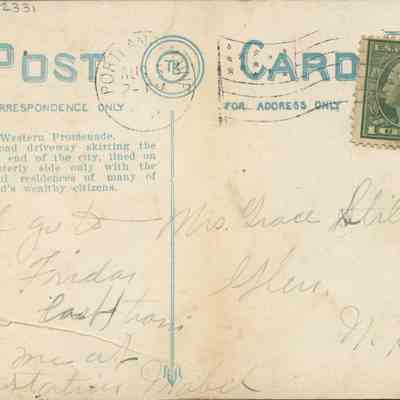 2331
POST CARD
PORTLAND
AUG
2-
CORRESPONDENCE ONLY
FOR ADDRESS ONLY
Western Promenade.
oad driveway skirting the
end of the city, lined on
terly side only with the
ul residences of many of
d's wealthy citizens.
go to
Friday
last train
me at
station Mabel
Mrs. Grace
Glen
N.